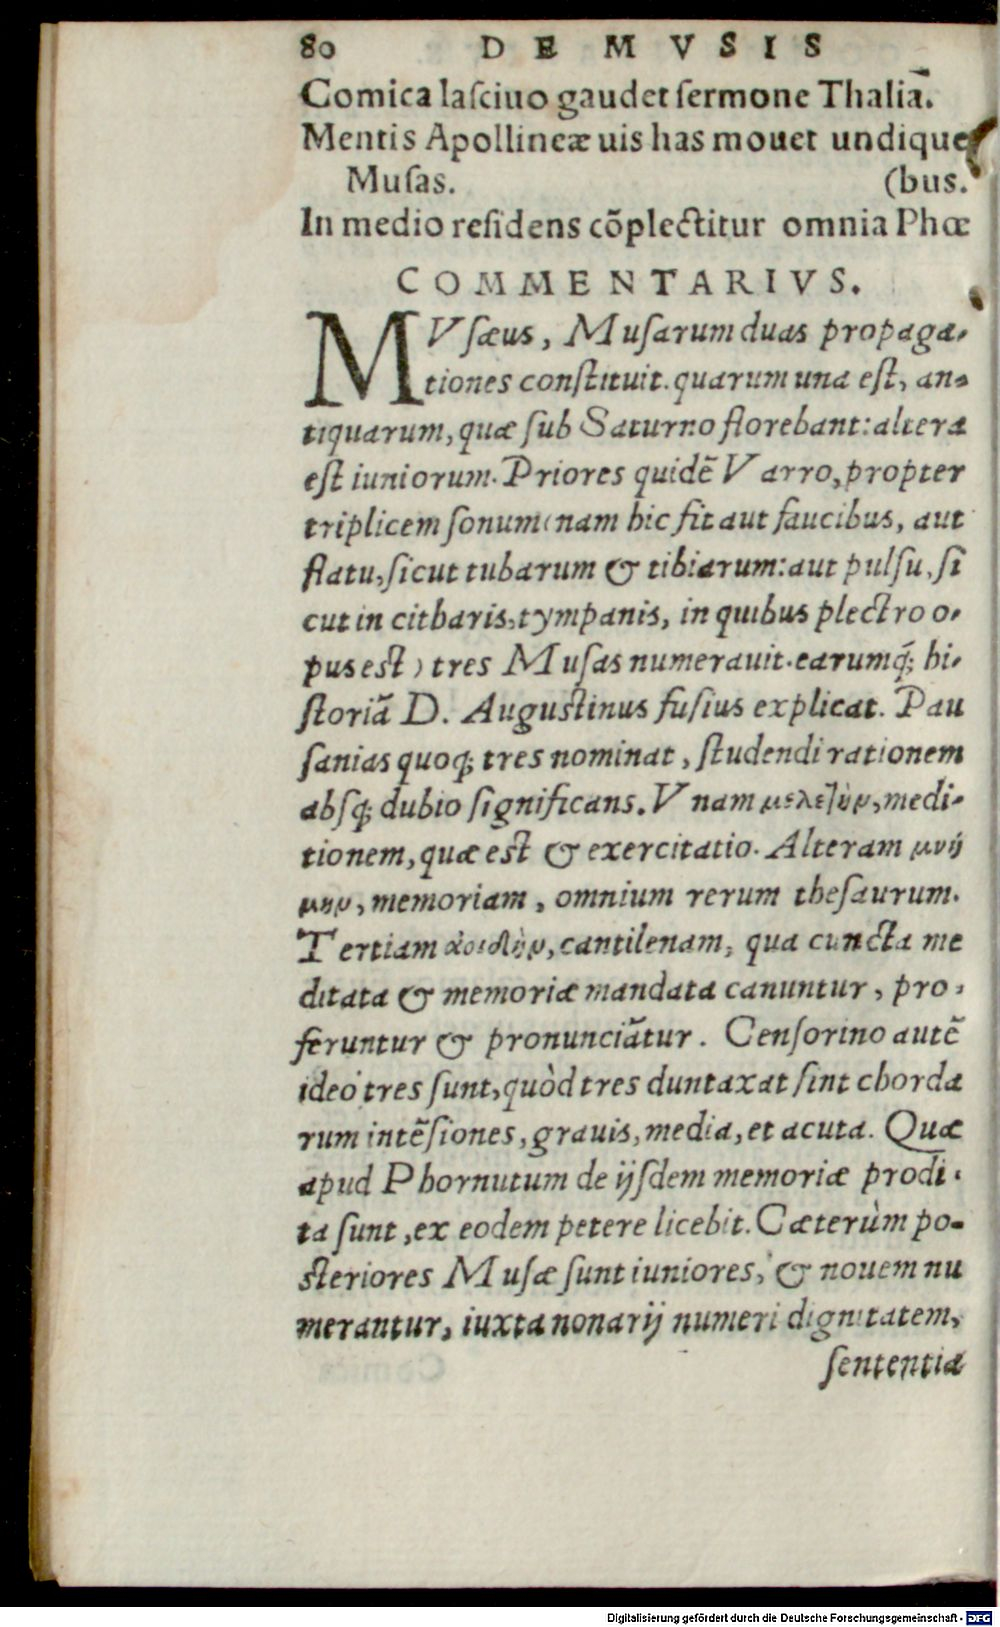 80 DE MVSIS
Comica laſciuo gaudet ſermone Thalia.
Mentis Apollineæ uis has mouet undique
Muſas. (bus.
In medio reſidens cõplectitur omnia Phœ
COMMENTARIVS.
MVſæus, Muſarum duas propaga-
tiones conſtituit. quarum una eſt, an-
tiquarum, quæ ſub Saturno florebant: altera
eſt iuniorum. Priores quidẽ Varro, propter
triplicem ſonum (nam hic fit aut faucibus, aut
flatu, ſicut tubarum & tibiarum: aut pulſu, ſi
cut in citharis, tympanis, in quibus plectro o-
pus eſt) tres Muſas numerauit. earumq́; hi-
ſtoriã D. Auguſtinus fuſius explicat. Pau
ſanias quoq; tres nominat, ſtudendi rationem
abſq; dubio ſignificans. Vnam μελετὴν, medi-
tionem, quæ est & exercitatio. Alteram μνή
μην, memoriam, omnium rerum theſaurum.
Tertiam ἀοιδὴν, cantilenam, qua cuncta me
ditata & memoriæ mandata canuntur, pro-
feruntur & pronunciãtur. Cenſorino autẽ
ideo tres ſunt, quòd tres duntaxat ſint chorda
rum intẽſiones, grauis, media, et acuta. Quæ
apud Phornutum de ijſdem memoriæ prodi-
ta ſunt, ex eodem petere licebit. Cæterùm po-
ſteriores Muſæ ſunt iuniores, & nouem nu
merantur, iuxta nonarij numeri dignitatem,
ſententia
Digitalisierung gefördert durch die Deutsche Forschungsgemeinschaft - DFG